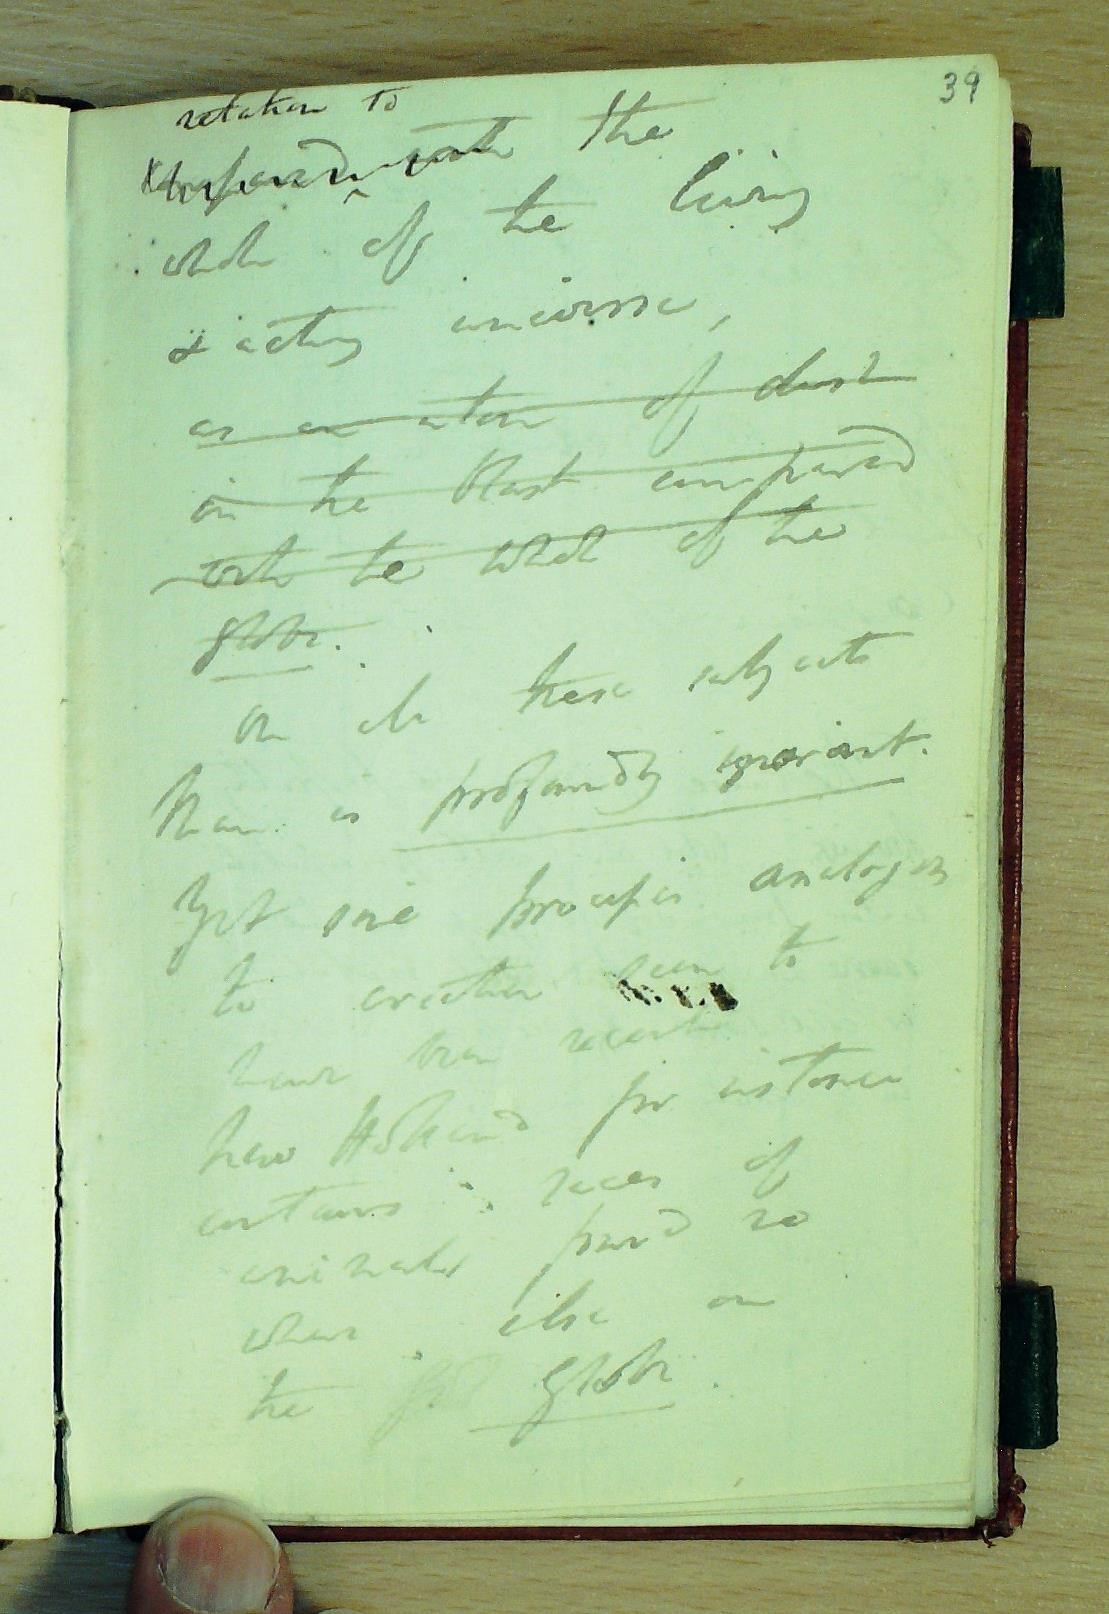 39
relation to
compared with the
whole of the living
& acting universe,
as an atom of dust
in the blast compared
with the whole of the
globe.
On all these subjects
Man is profoundly ignorant.
Yet some process analogous
to creation seem to
have been recent
New Holland for instance
contains races of
animals found no
where else on
the globe.